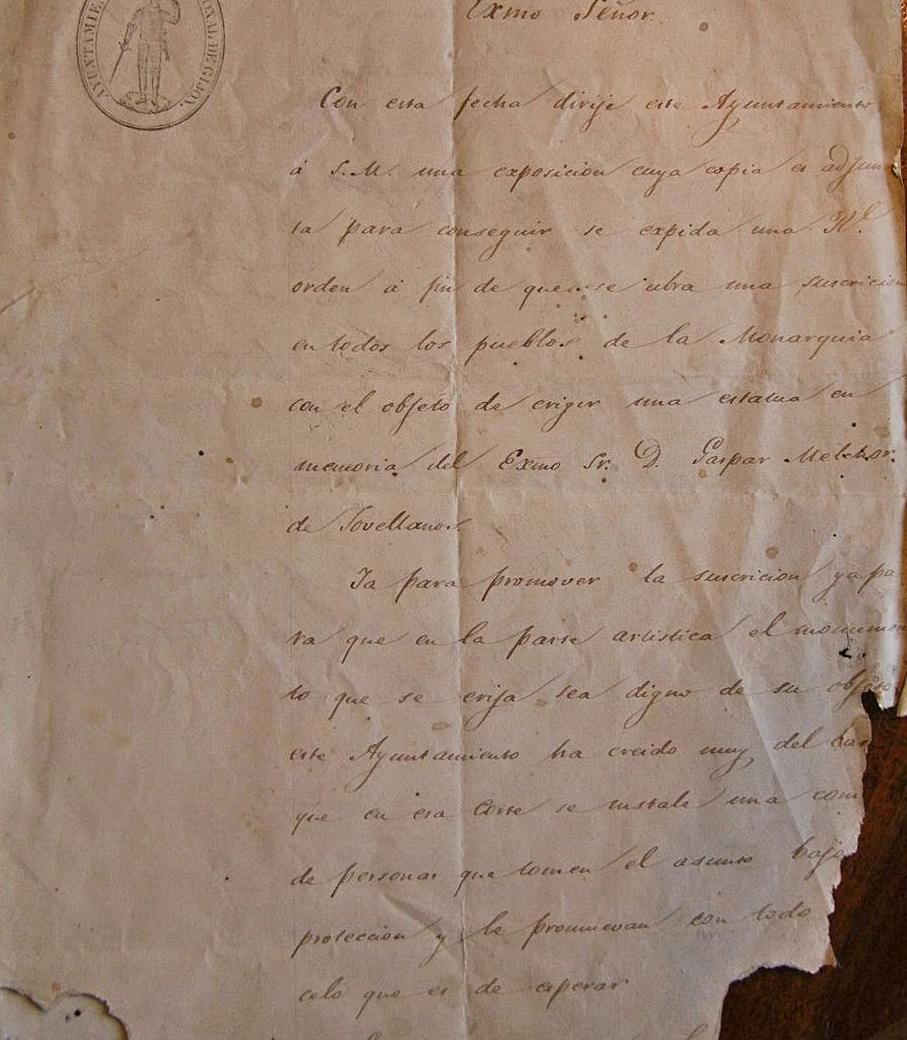 AYUNTAMIE
ONAL DE GIJON.
Exmo Señor.
Con esta fecha dirije este Ayuntamiento
á S.M. una exposicion cuya copia es adjun
ta para conseguir se expida una Rl.
orden á fin de que se abra una suscricion
en todos los pueblos de la Monarquia
con el objeto de erigir una estatua en
memoria del Exmo Sr. D. Gaspar Melchor
de Jovellanos.
Ya para promover la suscricion ya pa
ra que en la parte artistica el monumen
to que se erija sea digno de su objeto
este Ayuntamiento ha creido muy del
que en esa Corte se instale una com
de personas que tomen el asunto bajo
proteccion y le promuevan con todo
celo que es de esperar